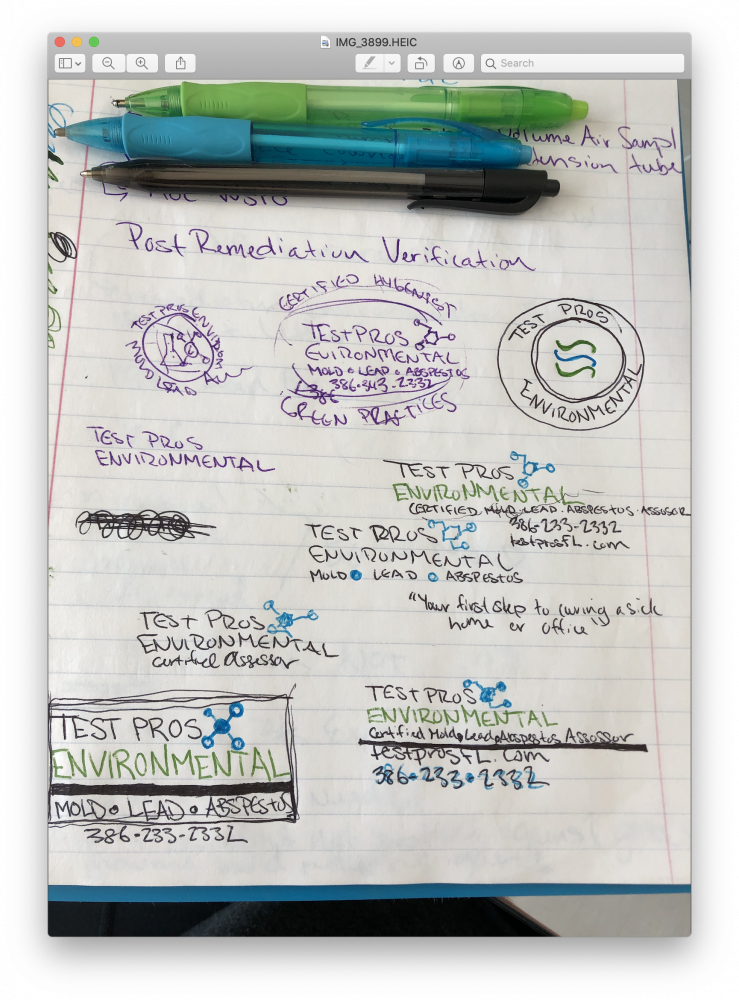 IMG_3899.HEIC
Search
Volume Air Sampl
tension tube
Post Remediation Verification
CERTIFIED HYGENIST
TEST PROS
EUIRONMENTAL
MOLD • LEAD • ABSPESTOS
386-343-2332
GREEN PRACTICES
TEST PROS ENVIRONM
MOLD LEAD
TEST PROS
ENVIRONMENTAL
TEST PROS
ENVIRONMENTAL
TEST PROS
ENVIRONMENTAL
CERTIFIED MOLD. LEAD. ABSPESTOS ASSUSOR
386-233-2332
testprosFL.com
TEST PROS
ENVIRONMENTAL
MOLD • LEAD • ABSPESTOS
"Your first step to curing a sick
home or office"
TEST PROS
ENVIRONMENTAL
Certified Assessor
TEST PROS
ENVIRONMENTAL
MOLD • LEAD • ABSPESTOS
386-233-2332
TEST PROS
ENVIRONMENTAL
Certified Mold, Lead, Abspestos Assessor
testprosFL.com
386-233-2332